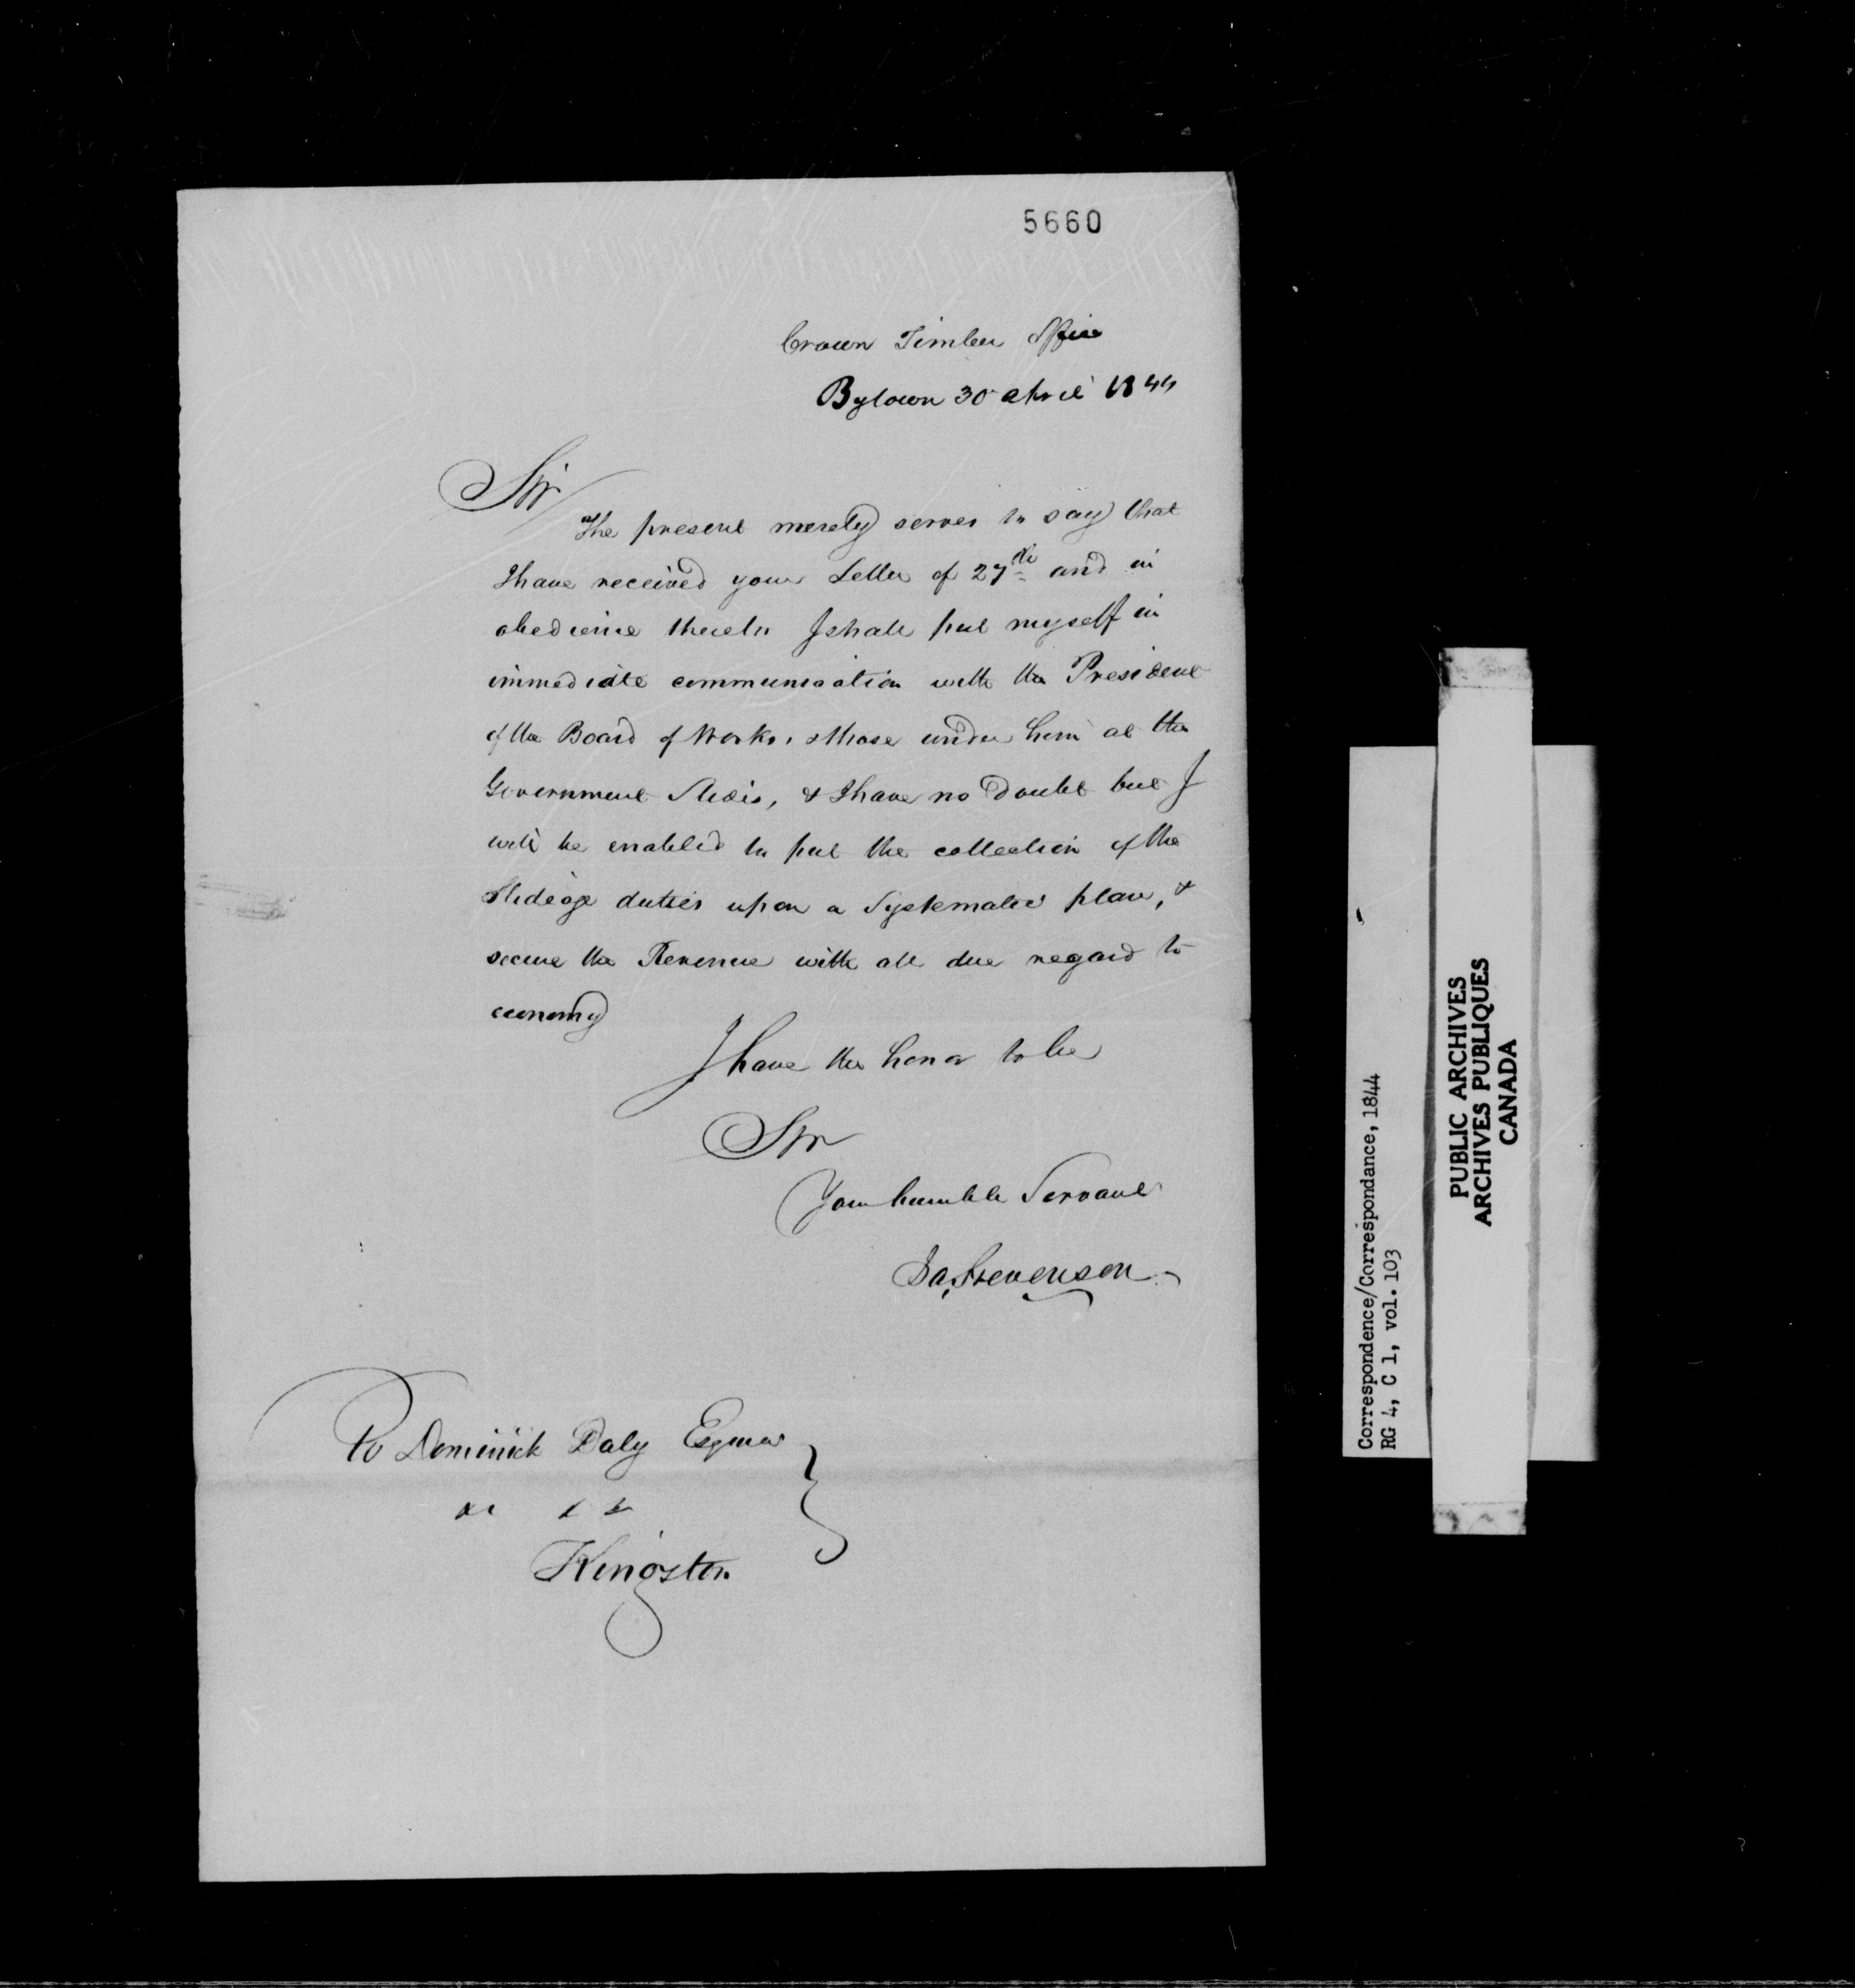 5660
Crown Timber Office
Bytown 30 April 1844
Sir
The present merely serves to say that
I have received your Letter of 27th and in
obedience thereto I shall put myself in
immediate communication with the President
of the Board of Works, & those under him at the
Government Slides, & I have no doubt but I
will be enabled to put the collection of the
Slideage duties upon a Systematic plan, &
secure the Revenue with all due regard to
economy
I have the honor to be
Sir
Your humble Servant
Ja, Stevenson
To Dominick Daly Esquire
&c & &
Kingston
Correspondence/Correspondance, 1844
RG 4, C 1, vol. 103
PUBLIC ARCHIVES
ARCHIVES PUBLIQUES
CANADA